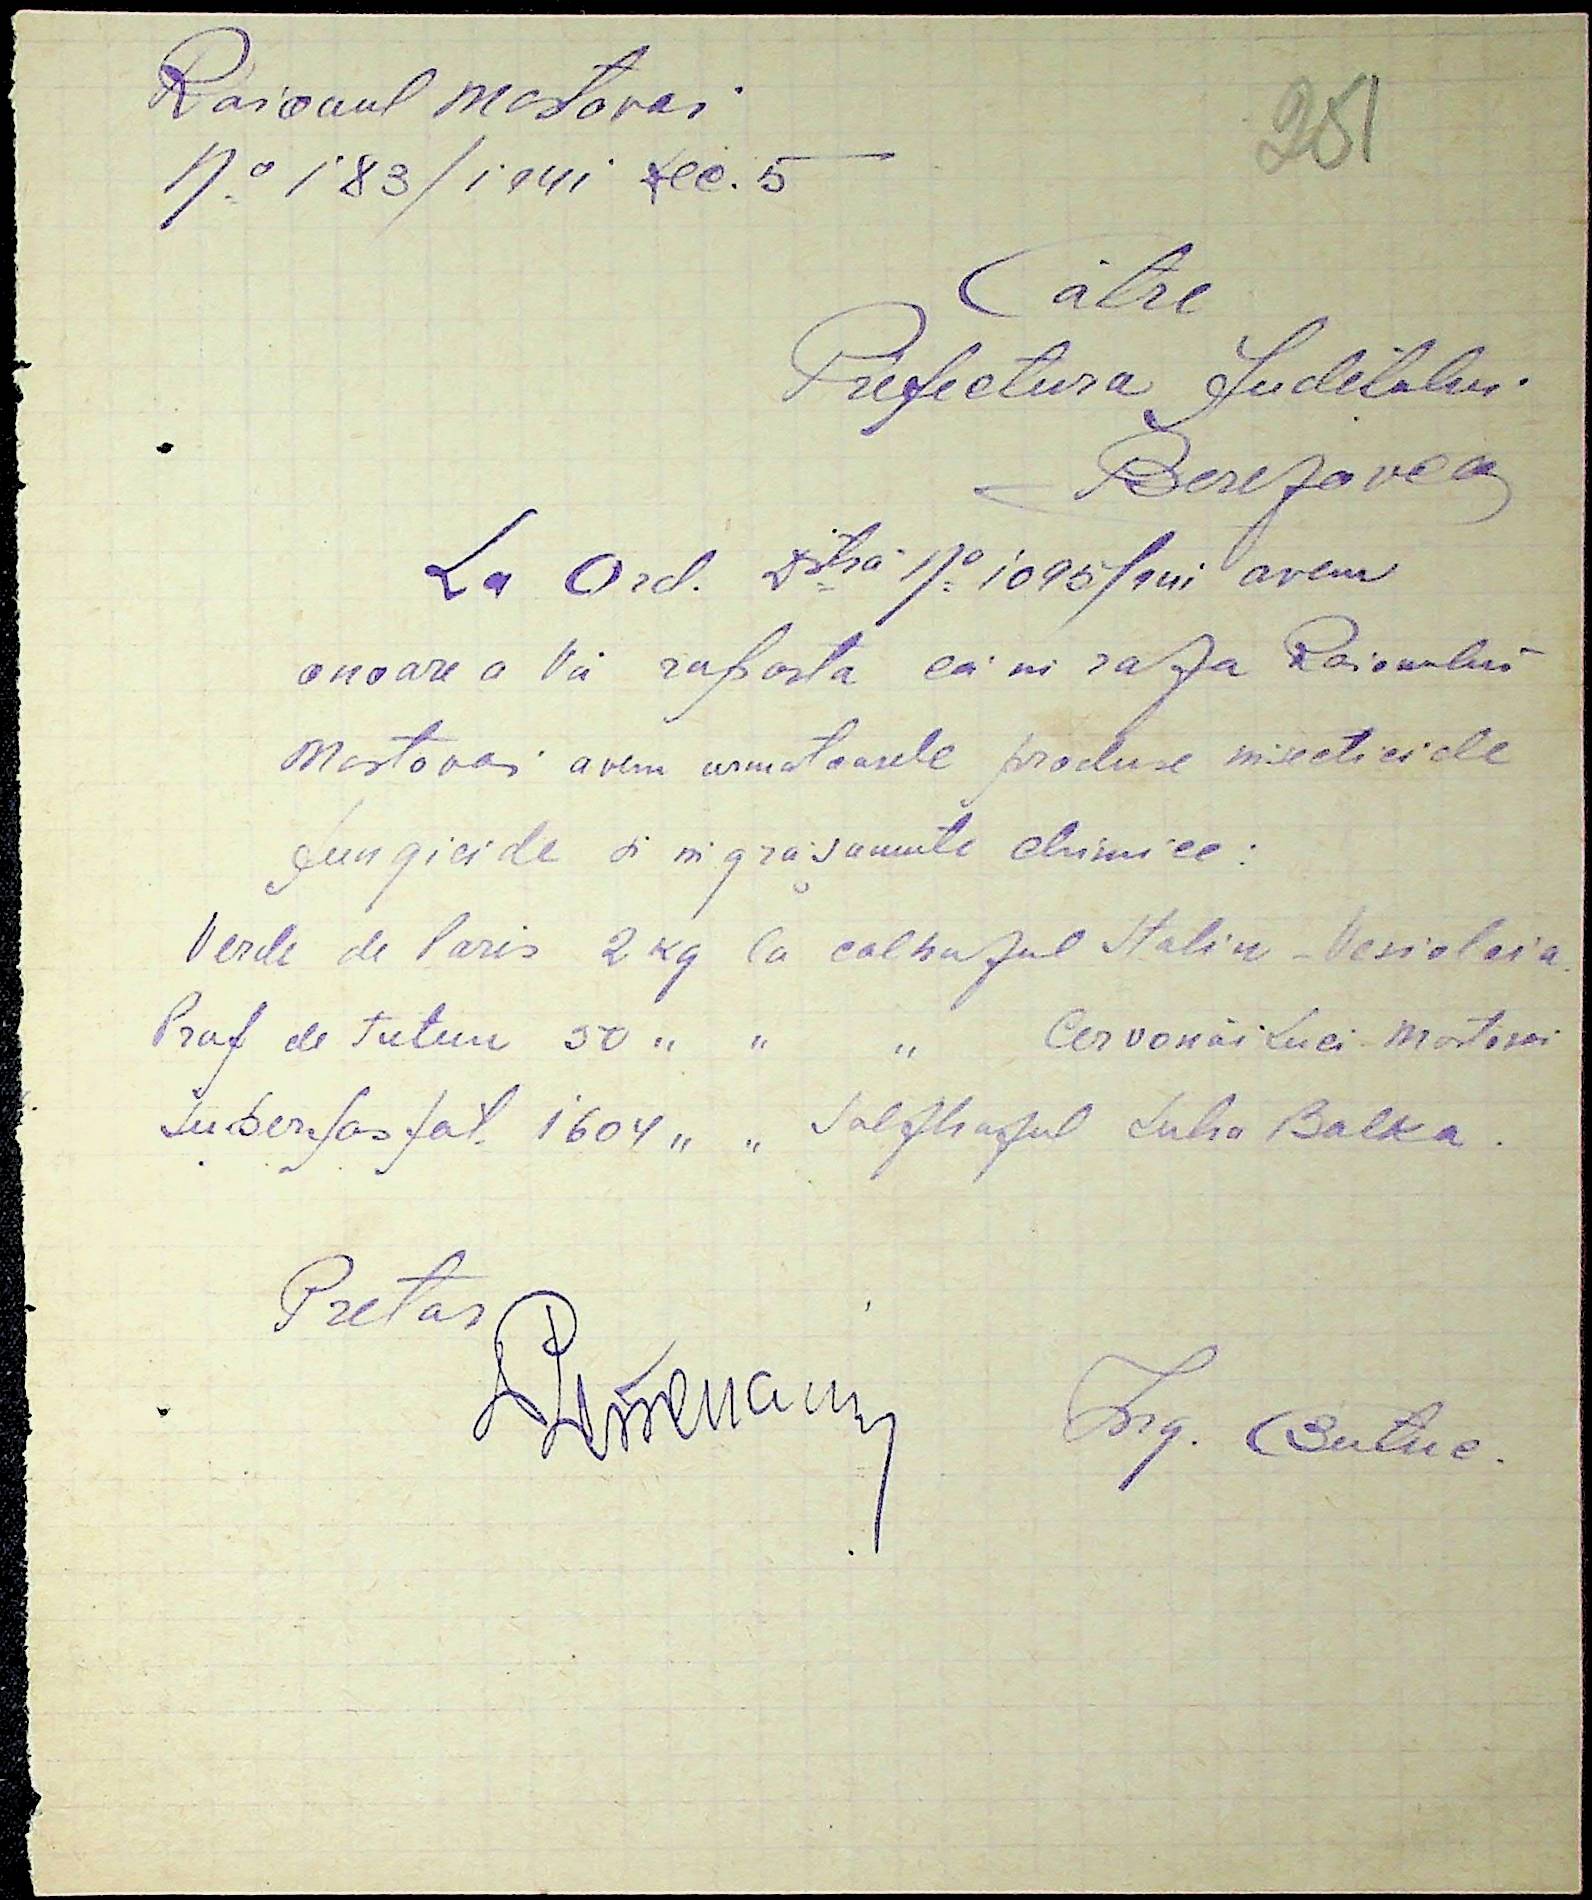 Raionul Mostovoi
251
No 183/1941 Dec. 5
Către
Prefectura Judetului
Berezovca
La Ord. Dtră No 1095/941 avem
onoare a Vă raporta că in raza Raionului
Mostovoi avem urmatoarele produse insecticide
fungicide si ingrășaminte chimice:
Verde de Paris 2 kg la colhozul Stalin - Vesiolaia.
Praf de Tutun 50 " " " Cervonăi Luci - Mostovoi
Superfosfat. 1604 " " Solzhozul Suha Balka.
Pretor
Ing. Butuc.